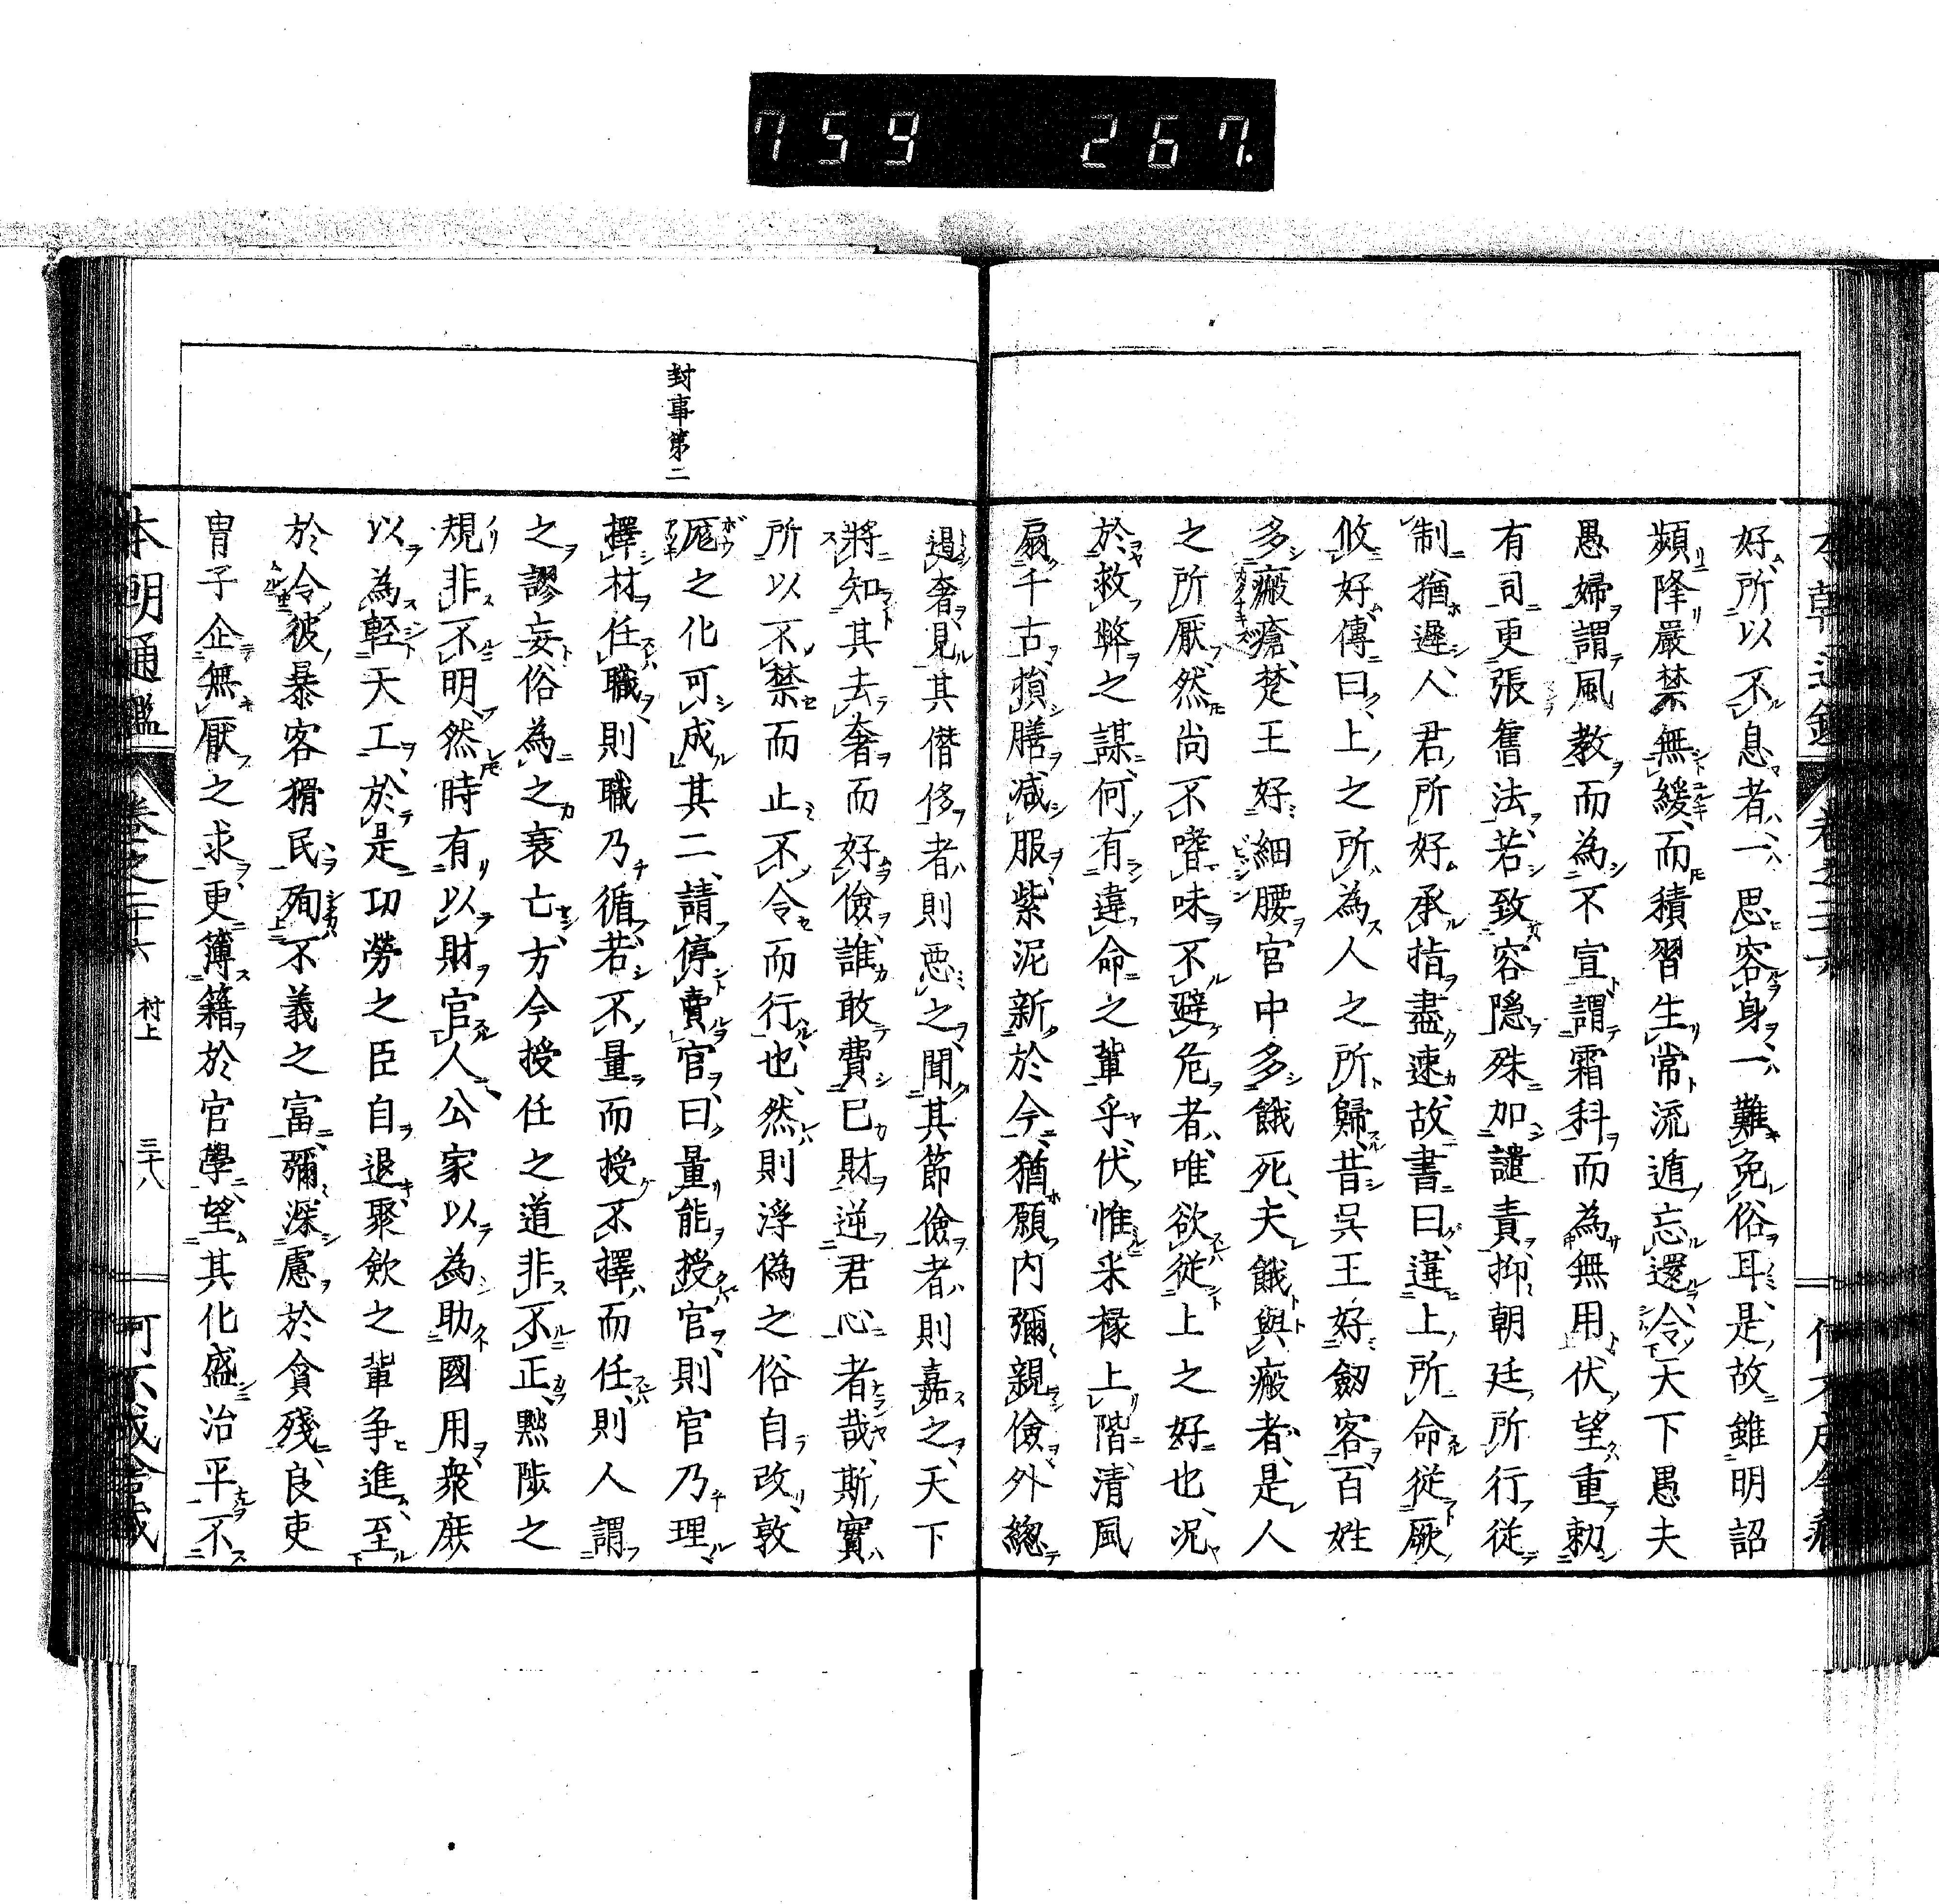 759 267.
好所以不息者一思容身一難免俗耳是故雖明詔
頻降嚴禁無緩而積習生常流遁忘還令天下愚夫
愚婦謂風教而為不宣謂霜科而為無用伏望重勅
有司更張舊法若致容隠殊加譴責抑朝廷所行從
制猶遲人君所好承指盡速故書曰違上所命從厥
攸好傳曰上之所為人之所歸昔呉王好劔客百姓
多瘢瘡楚王好細腰宮中多餓死夫餓與瘢者是人
之所厭然尚不嗜味不避危者唯欲從上之好也況
於救弊之謀何有違命之輩乎伏惟采椽上階清風
扇千古損膳減服紫泥新於今猶願内彌親儉外總
遏奢見其僭侈者則惡之聞其節儉者則嘉之天下
將知其去奢而好儉誰敢費已財逆君心者哉斯實
所以不禁而止不令而行也然則浮偽之俗自改敦
厖之化可成其二請停賣官曰量能授官則官乃理
擇材任職則職乃循若不量而授不擇而任則人謂
之謬妄俗為之衰亡方今授任之道非不正黜陟之
規非不明然時有以財官人公家以為助國用衆庶
以為輕天工於是功勞之臣自退聚歛之輩争進至
於令彼暴客猾民殉不義之富彌深慮於貪殘良吏
冑子企無厭之求更簿籍於官學望其化盛治平不
封事第二
本朝通鑑 卷之二十六 村上 三十八